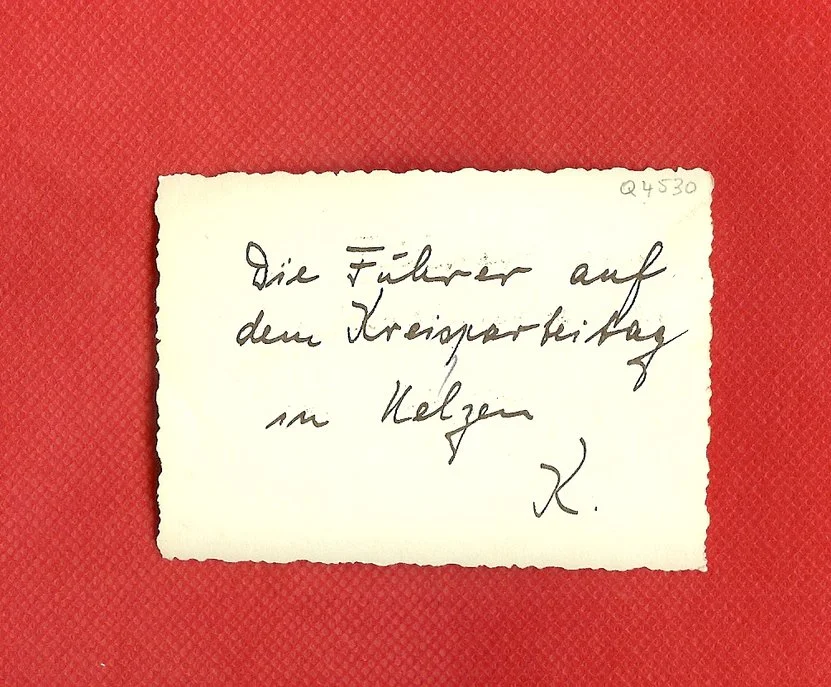 Q4530
Die Führer auf
dem Kreisparteitag
in Uelzen
K.